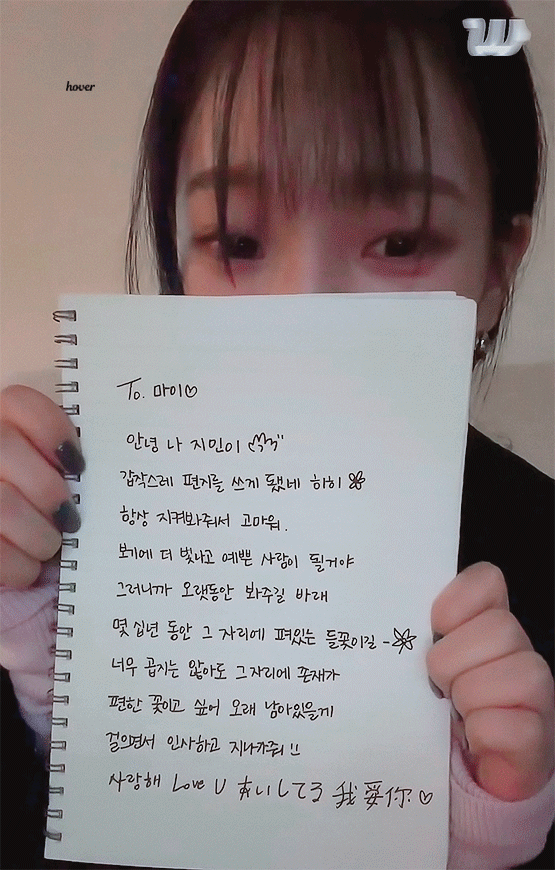 hover
To. 마이♡
안녕 나 지민이
갑작스레 편지를 쓰게 됐네 히히
항상 지켜봐줘서 고마워.
보기에 더 빛나고 예쁜 사람이 될거야
그러니까 오랫동안 봐주길 바래
몇 십년 동안 그 자리에 펴있는 들꽃이길 -
너무 곱지는 않아도 그 자리에 존재가
편한 꽃이고 싶어 오래 남아있을게
걸으면서 인사하고 지나가줘 !!
사랑해 Love U あいしてる 我爱你 ♡